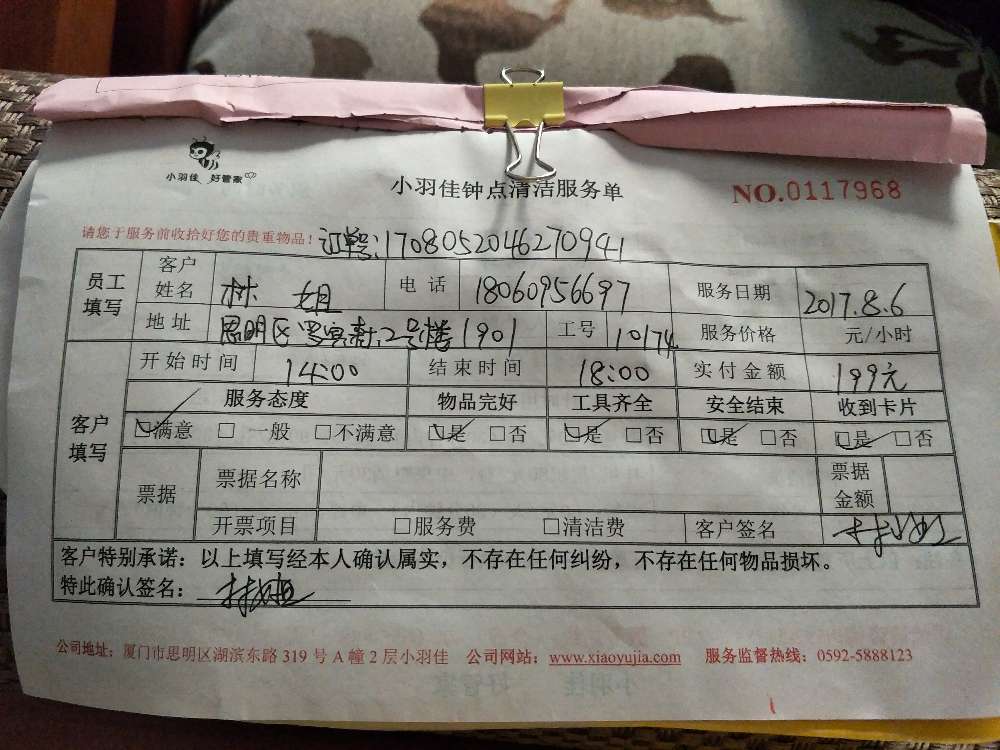 小羽佳 好管家
小羽佳钟点清洁服务单
NO.0117968
请您于服务前收拾好您的贵重物品！ 订单号:1708052046270941
员工填写 客户姓名 林 姐 电话 18060956697 服务日期 2017.8.6
地址 思明区 2号楼1901 工号 10174 服务价格 元/小时
客户填写 开始时间 14:00 结束时间 18:00 实付金额 199元
服务态度 物品完好 工具齐全 安全结束 收到卡片
☑满意 □ 一般 □不满意 ☑是 □否 ☑是 □否 ☑是 □否 ☑是 □否
票据 票据名称 票据金额
开票项目 □服务费 □清洁费 客户签名 林姐
客户特别承诺：以上填写经本人确认属实，不存在任何纠纷，不存在任何物品损坏。
特此确认签名： 林姐
公司地址：厦门市思明区湖滨东路 319 号 A 幢 2 层小羽佳 公司网站：www.xiaoyujia.com 服务监督热线：0592-5888123